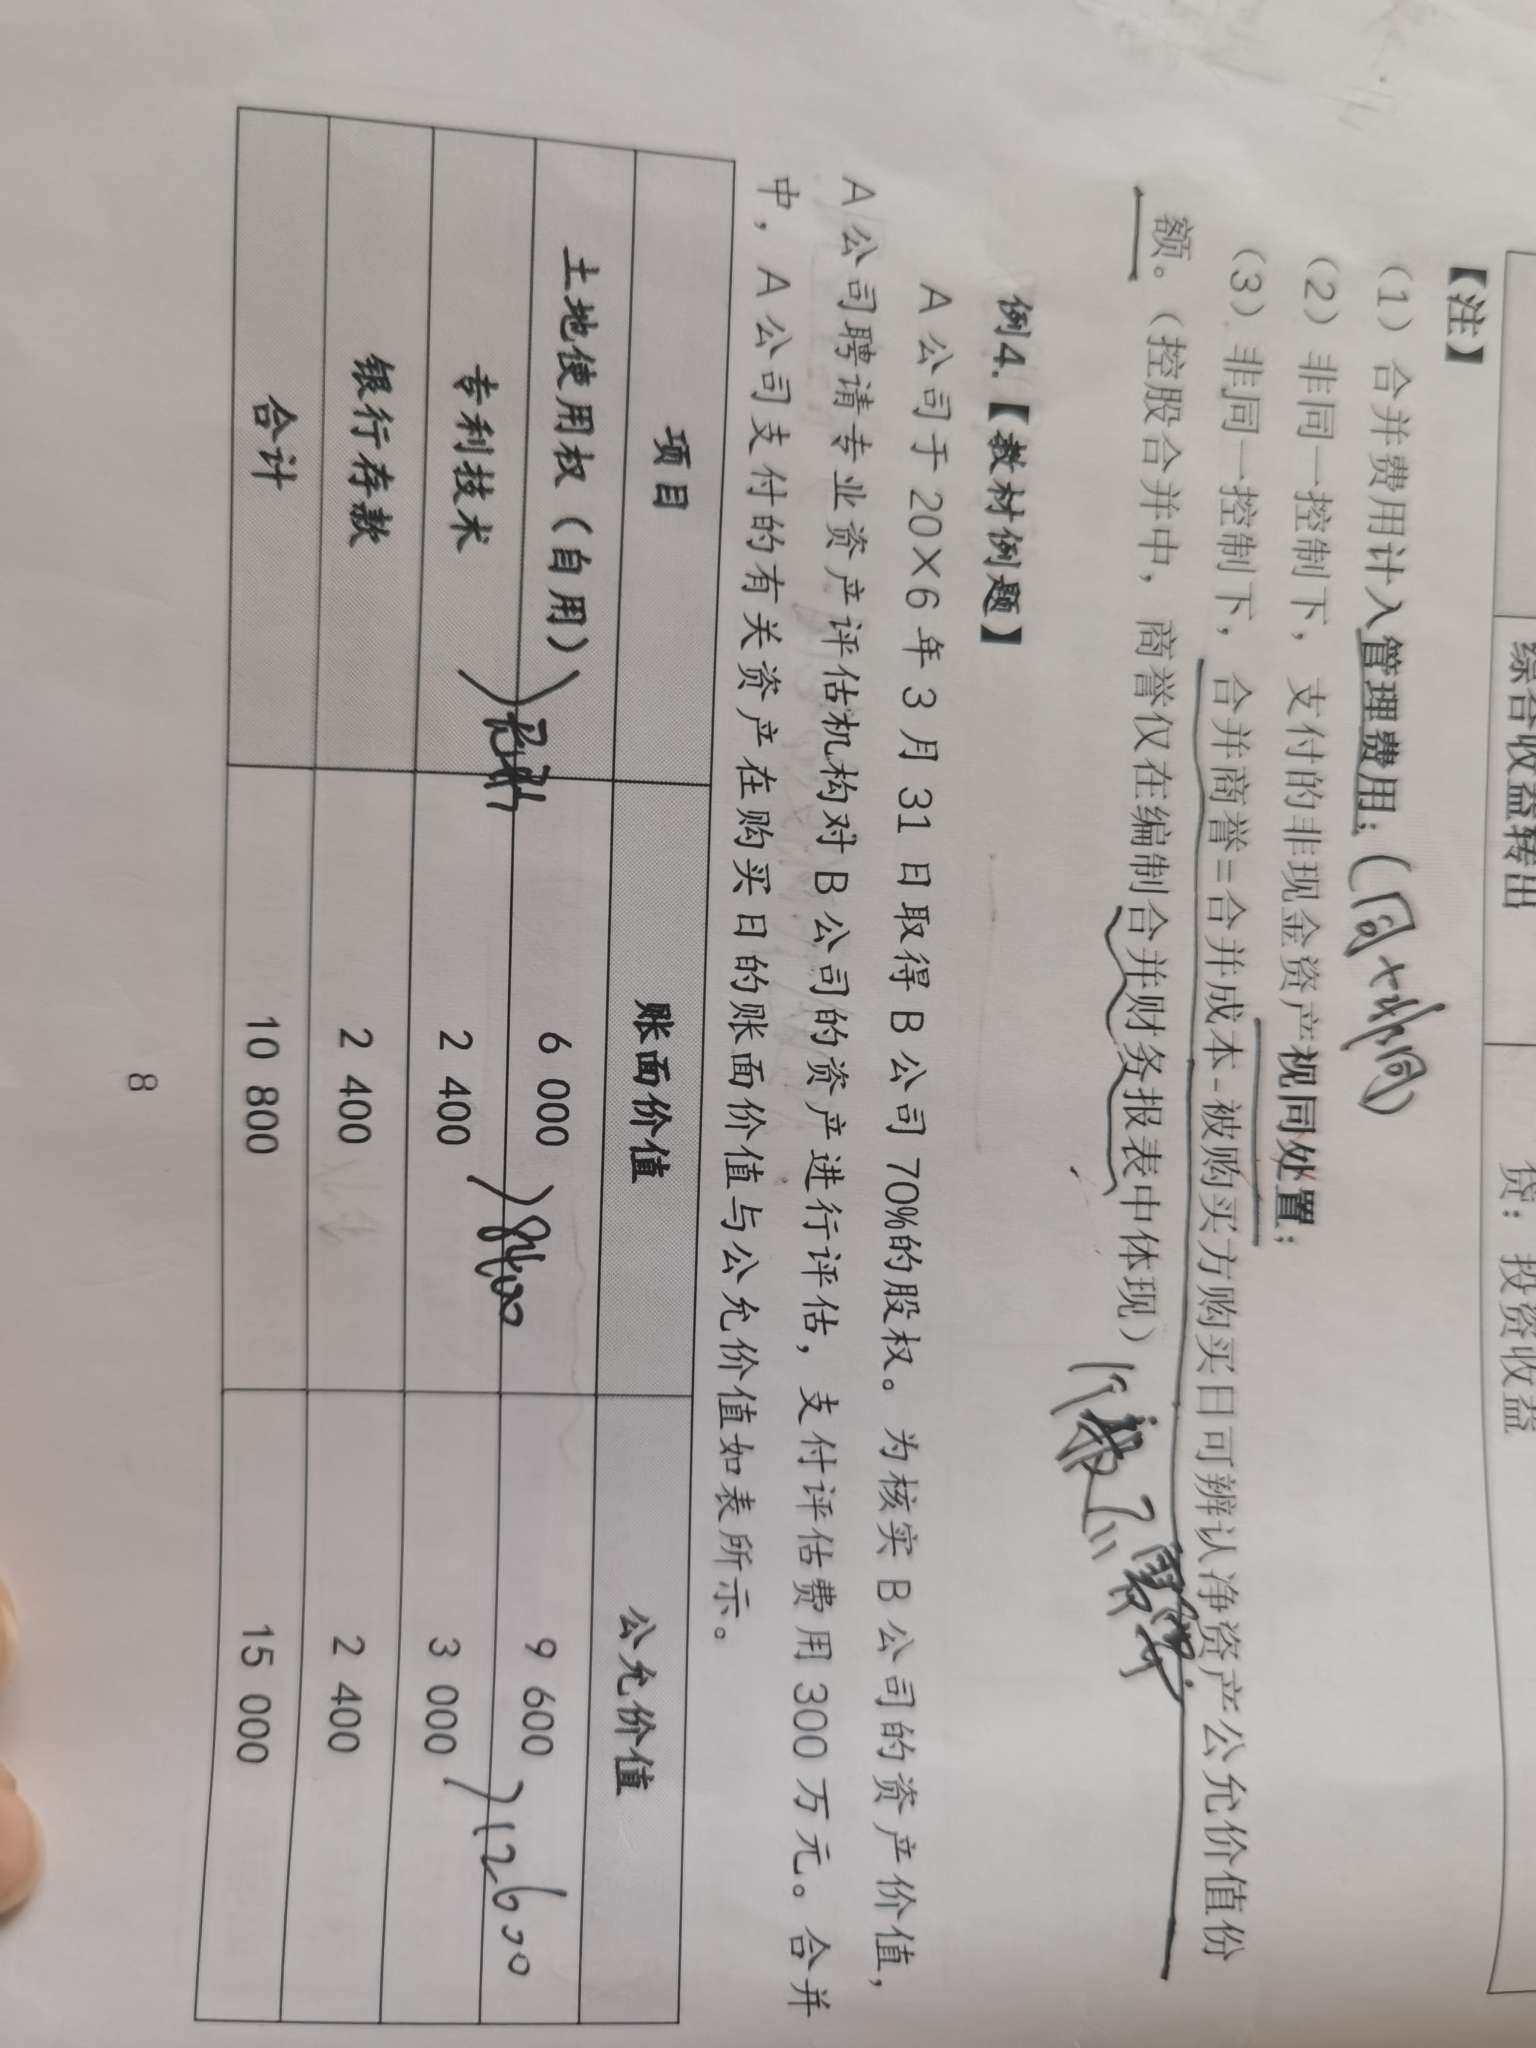 综合收益转出
贷：投资收益
【注】
（1）合并费用计入管理费用；（同
（2）非同一控制下，支付的非现金资产视同处置；
（3）非同一控制下，合并商誉=合并成本-被购买方购买日可辨认净资产公允价值份
额。（控股合并中，商誉仅在编制合并财务报表中体现）
例4.【教材例题】
A公司于20X6年3月31日取得B公司70%的股权。为核实B公司的资产价值，
A公司聘请专业资产评估机构对B公司的资产进行评估，支付评估费用300万元。合并
中，A公司支付的有关资产在购买日的账面价值与公允价值如表所示。
项目 账面价值 公允价值
土地使用权（自用） 6 000 9 600
8400 12600
专利技术 2 400 3 000
银行存款 2 400 2 400
合计 10 800 15 000
8